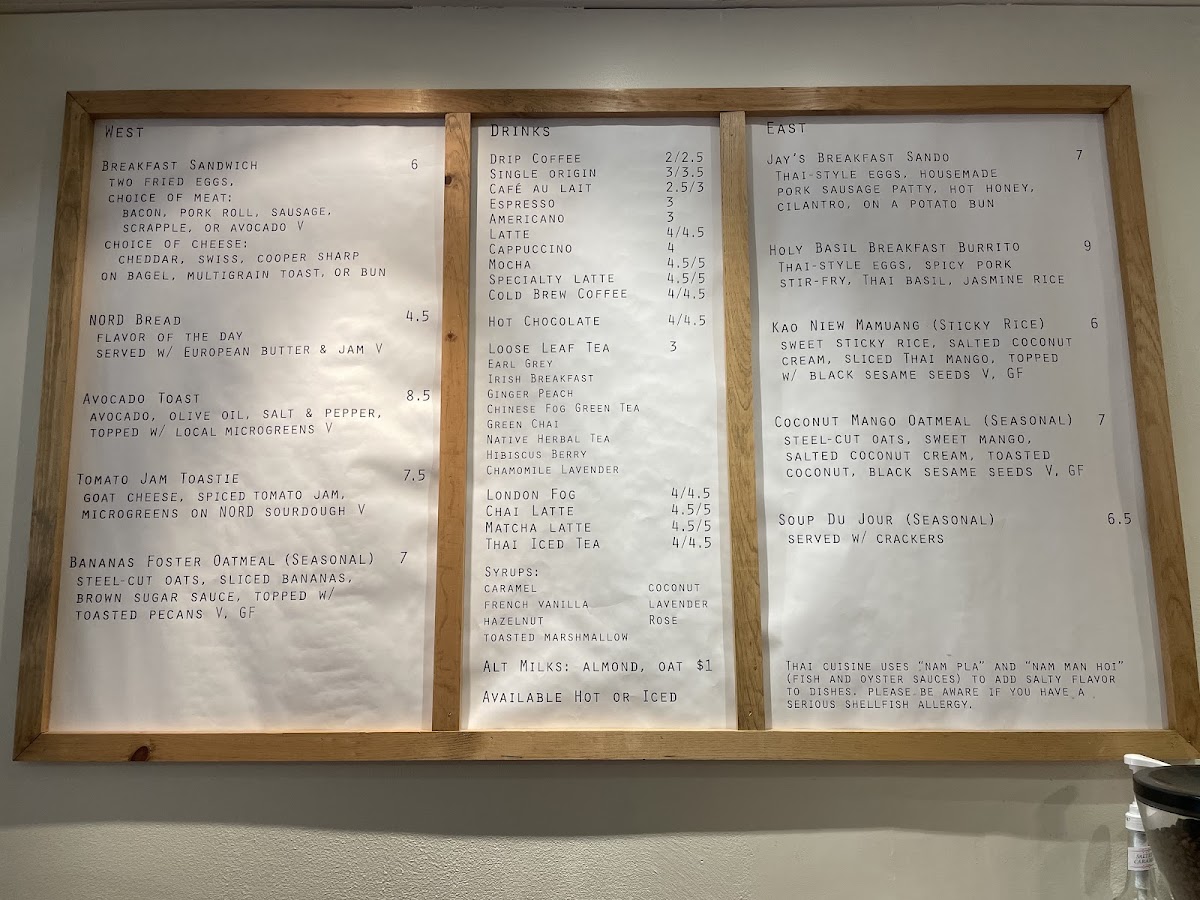 WEST
BREAKFAST SANDWICH 6
TWO FRIED EGGS,
CHOICE OF MEAT:
BACON, PORK ROLL, SAUSAGE,
SCRAPPLE, OR AVOCADO V
CHOICE OF CHEESE:
CHEDDAR, SWISS, COOPER SHARP
ON BAGEL, MULTIGRAIN TOAST, OR BUN
NORD BREAD 4.5
FLAVOR OF THE DAY
SERVED W/ EUROPEAN BUTTER & JAM V
AVOCADO TOAST 8.5
AVOCADO, OLIVE OIL, SALT & PEPPER,
TOPPED W/ LOCAL MICROGREENS V
TOMATO JAM TOASTIE 7.5
GOAT CHEESE, SPICED TOMATO JAM,
MICROGREENS ON NORD SOURDOUGH V
BANANAS FOSTER OATMEAL (SEASONAL) 7
STEEL-CUT OATS, SLICED BANANAS,
BROWN SUGAR SAUCE, TOPPED W/
TOASTED PECANS V, GF
DRINKS
DRIP COFFEE 2/2.5
SINGLE ORIGIN 3/3.5
CAFÉ AU LAIT 2.5/3
ESPRESSO 3
AMERICANO 3
LATTE 4/4.5
CAPPUCCINO 4
MOCHA 4.5/5
SPECIALTY LATTE 4.5/5
COLD BREW COFFEE 4/4.5
HOT CHOCOLATE 4/4.5
LOOSE LEAF TEA 3
EARL GREY
IRISH BREAKFAST
GINGER PEACH
CHINESE FOG GREEN TEA
GREEN CHAI
NATIVE HERBAL TEA
HIBISCUS BERRY
CHAMOMILE LAVENDER
LONDON FOG 4/4.5
CHAI LATTE 4.5/5
MATCHA LATTE 4.5/5
THAI ICED TEA 4/4.5
SYRUPS:
CARAMEL COCONUT
FRENCH VANILLA LAVENDER
HAZELNUT ROSE
TOASTED MARSHMALLOW
ALT MILKS: ALMOND, OAT $1
AVAILABLE HOT OR ICED
EAST
JAY'S BREAKFAST SANDO 7
THAI-STYLE EGGS, HOUSEMADE
PORK SAUSAGE PATTY, HOT HONEY,
CILANTRO, ON A POTATO BUN
HOLY BASIL BREAKFAST BURRITO 9
THAI-STYLE EGGS, SPICY PORK
STIR-FRY, THAI BASIL, JASMINE RICE
KAO NIEW MAMUANG (STICKY RICE) 6
SWEET STICKY RICE, SALTED COCONUT
CREAM, SLICED THAI MANGO, TOPPED
W/ BLACK SESAME SEEDS V, GF
COCONUT MANGO OATMEAL (SEASONAL) 7
STEEL-CUT OATS, SWEET MANGO,
SALTED COCONUT CREAM, TOASTED
COCONUT, BLACK SESAME SEEDS V, GF
SOUP DU JOUR (SEASONAL) 6.5
SERVED W/ CRACKERS
THAI CUISINE USES "NAM PLA" AND "NAM MAN HOI"
(FISH AND OYSTER SAUCES) TO ADD SALTY FLAVOR
TO DISHES. PLEASE BE AWARE IF YOU HAVE A
SERIOUS SHELLFISH ALLERGY.